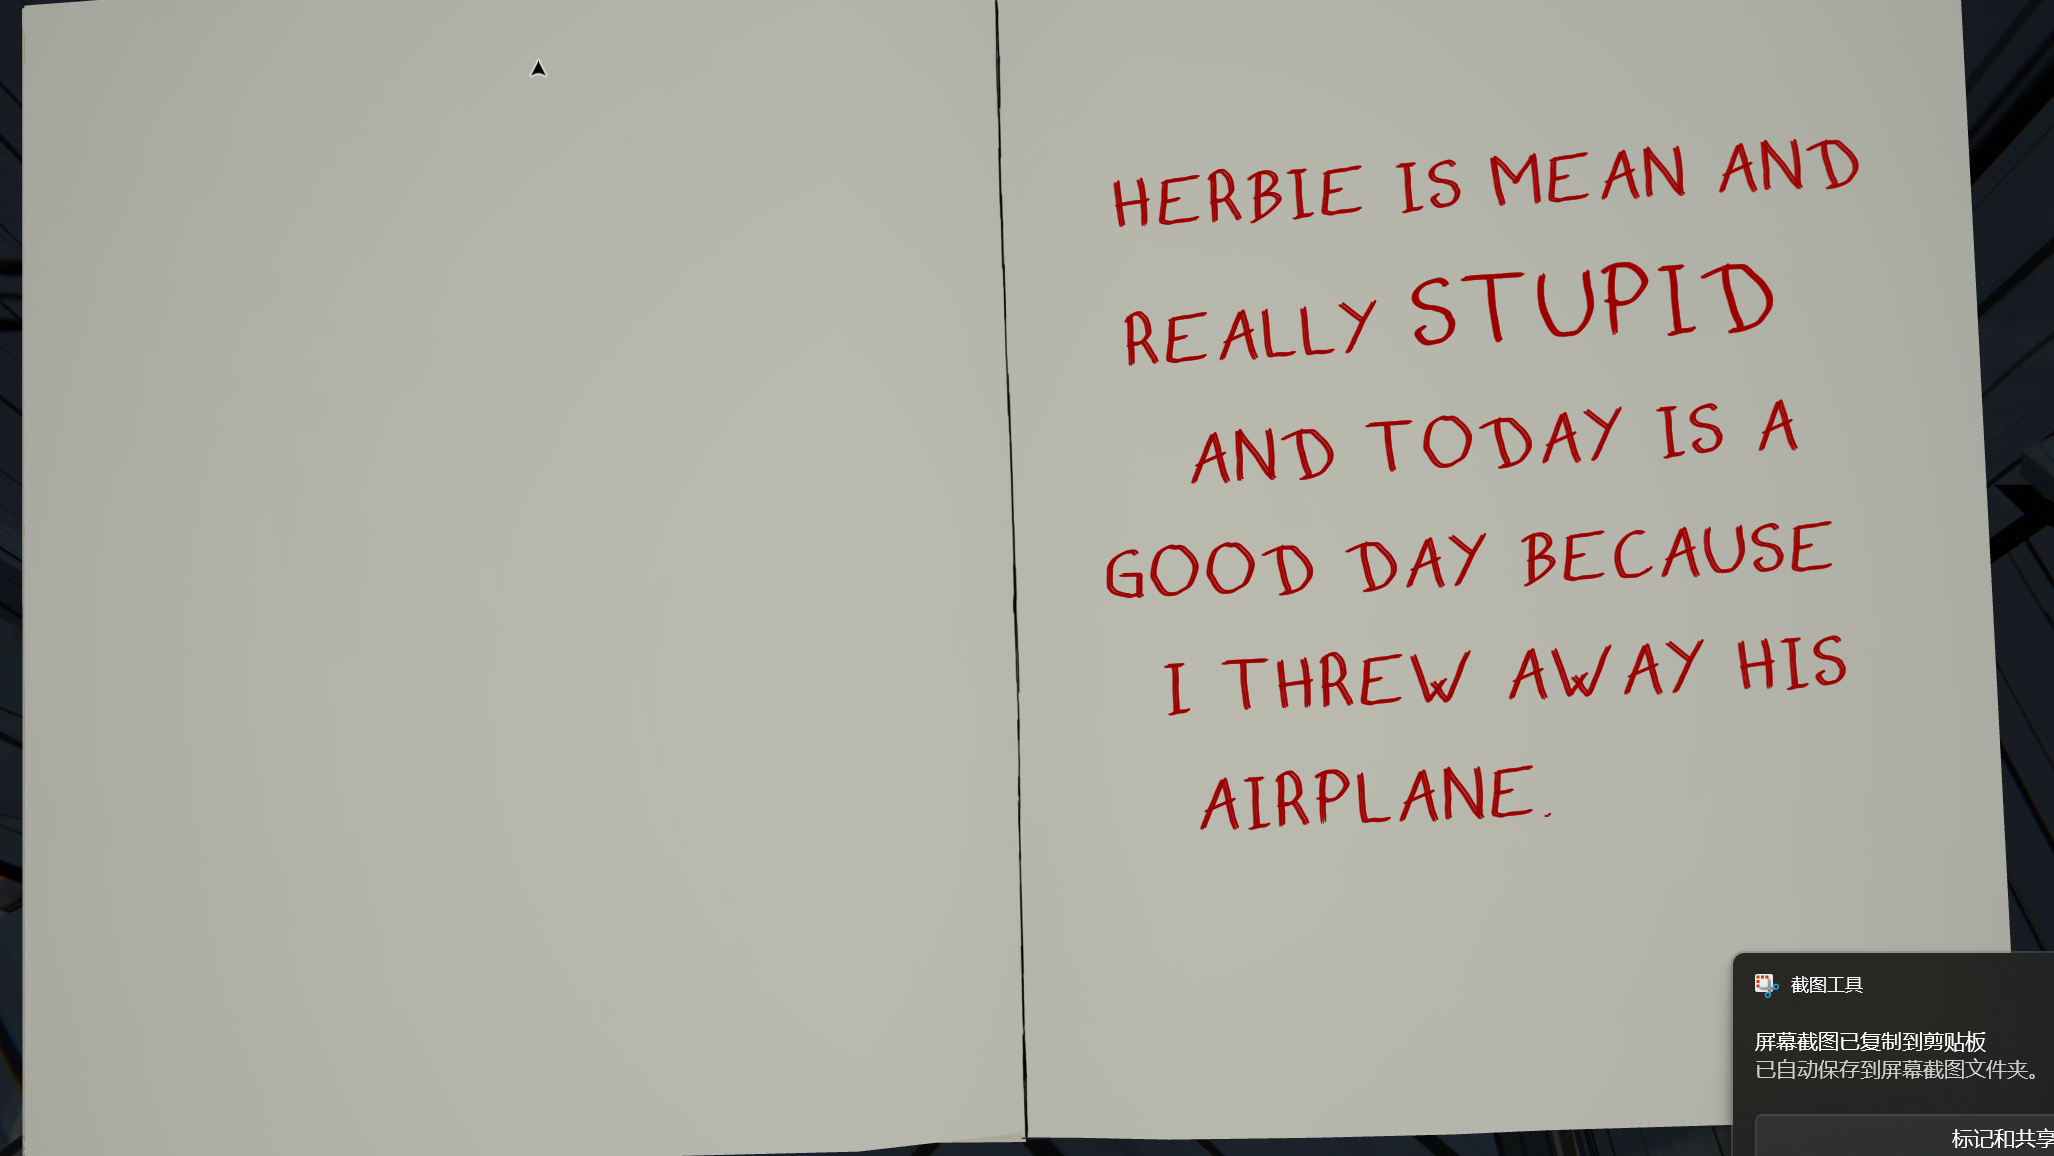 HERBIE IS MEAN AND
REALLY STUPID
AND TODAY IS A
GOOD DAY BECAUSE
I THREW AWAY HIS
AIRPLANE.
截图工具
屏幕截图已复制到剪贴板
已自动保存到屏幕截图文件夹。
标记和共享